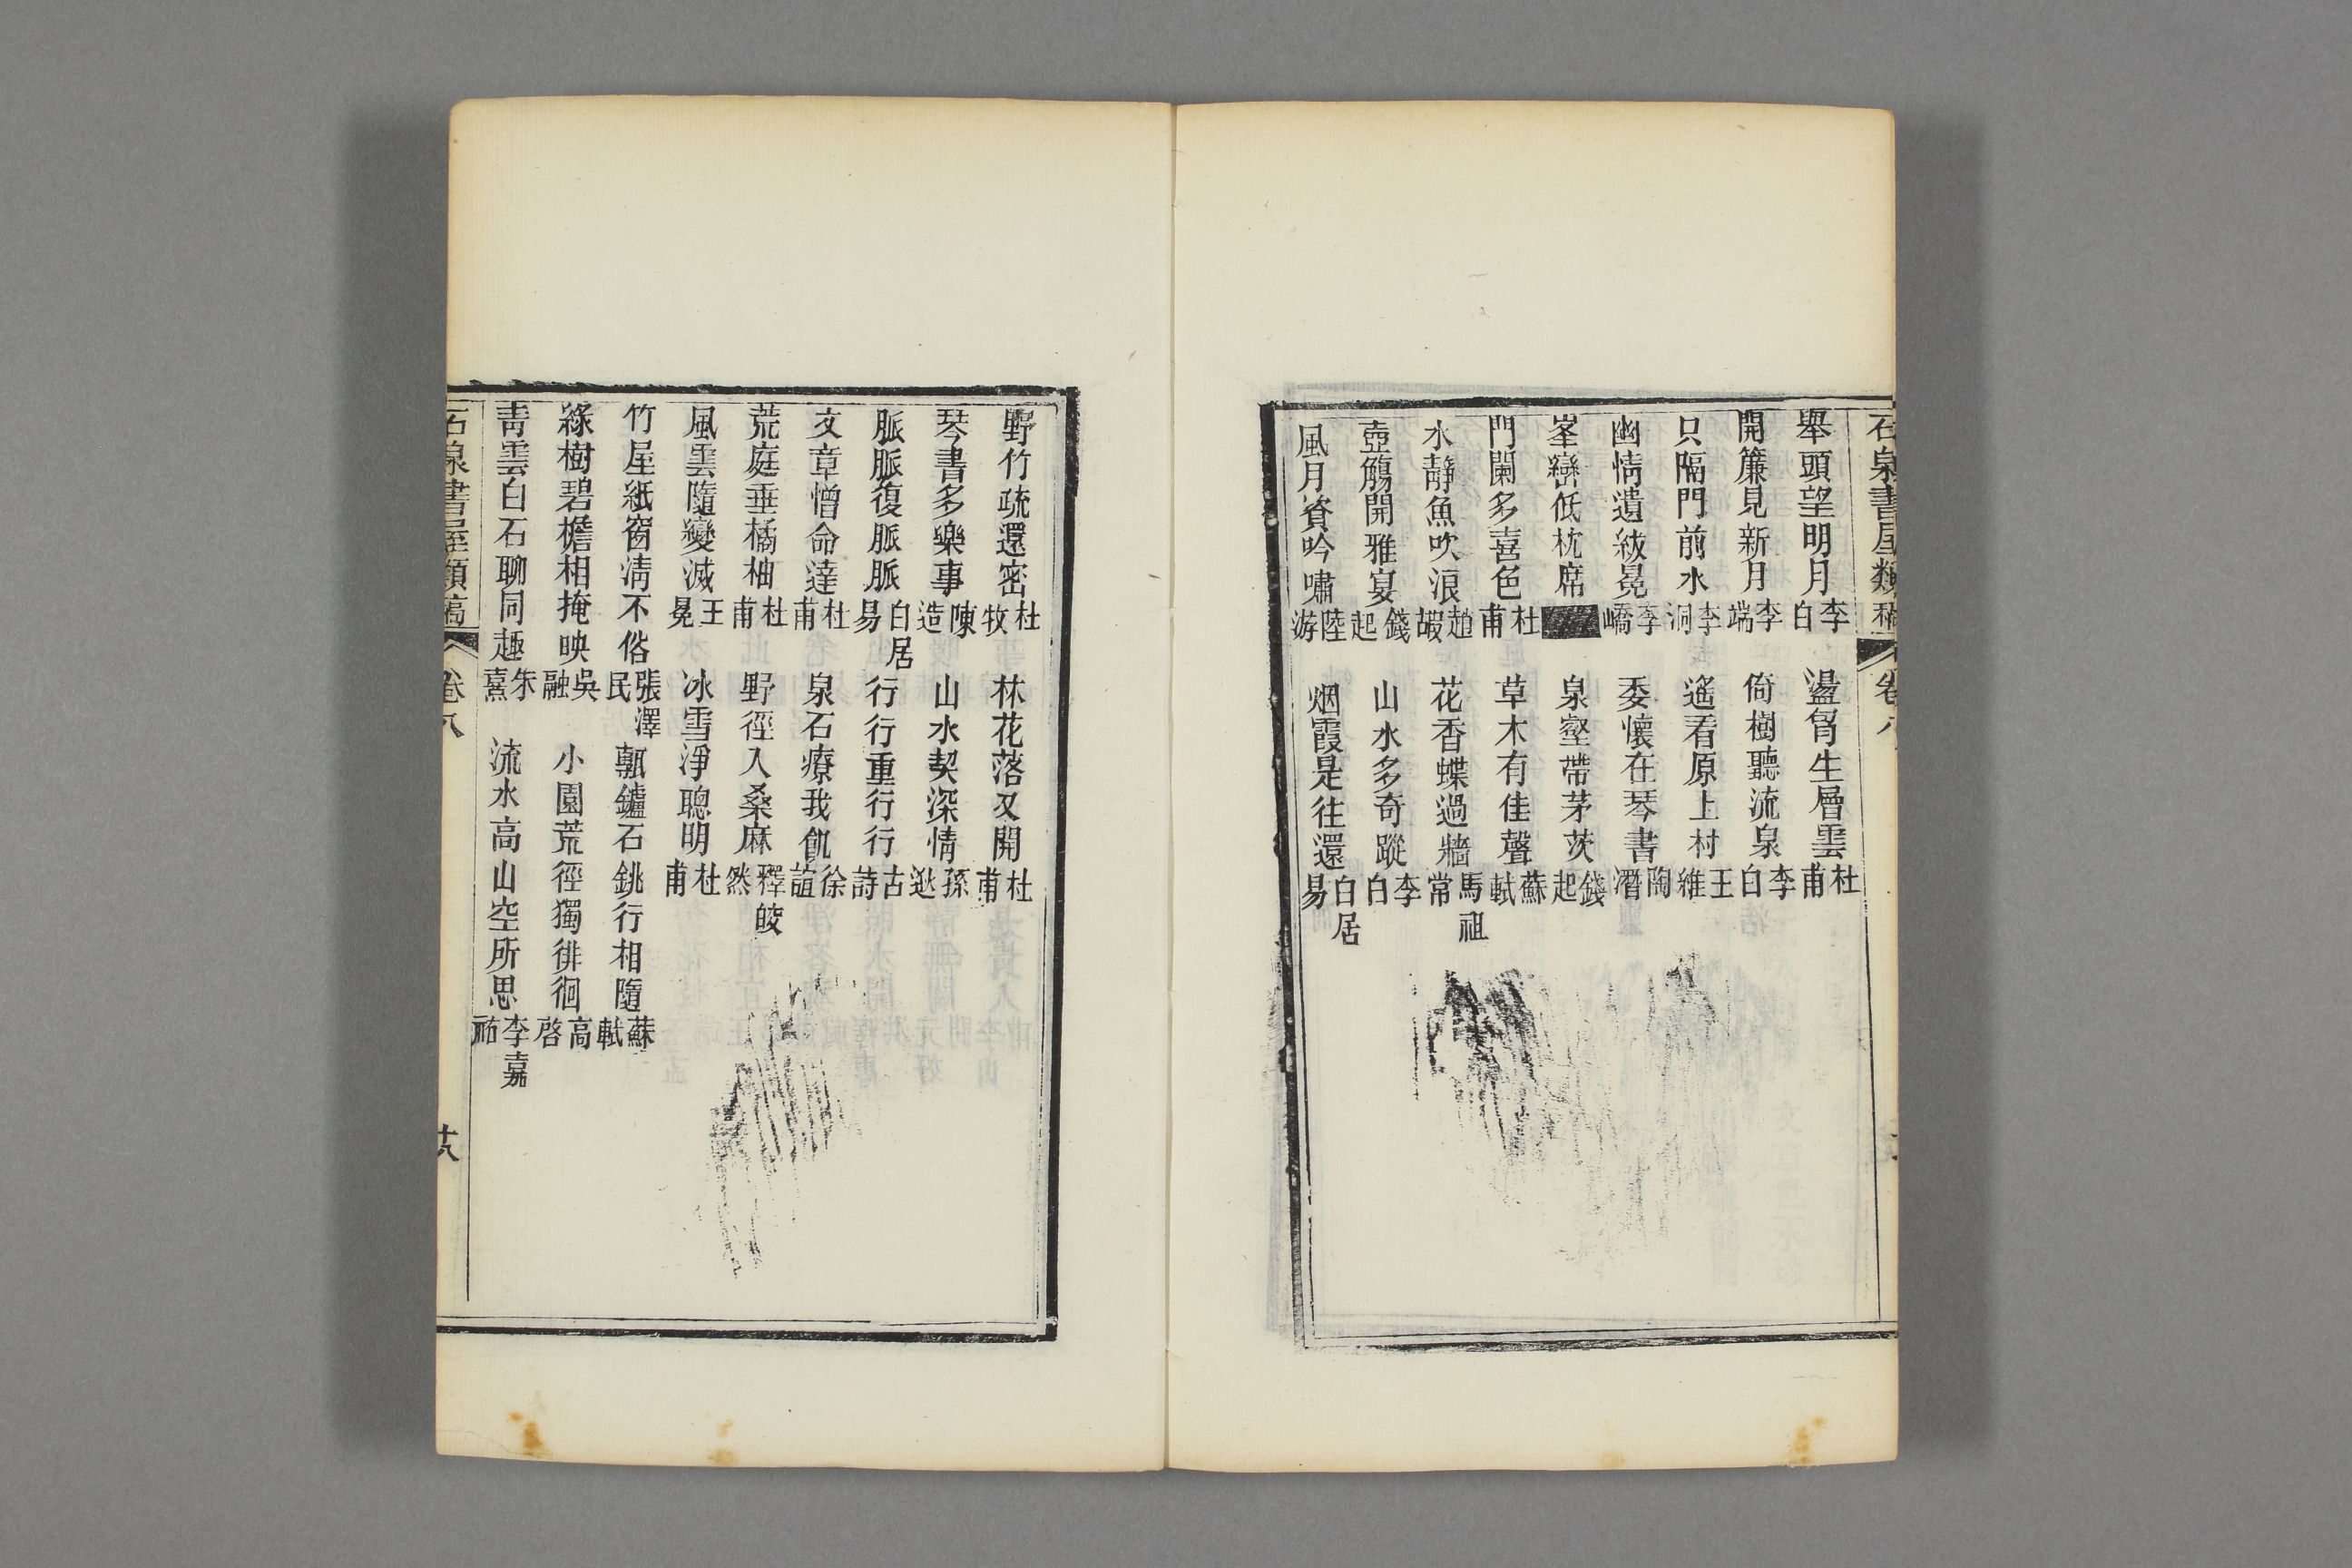 石泉書屋類稿 卷八
舉頭望明月李白 盪胷生層雲杜甫
開簾見新月李端 倚樹聽流泉李白
只隔門前水李洞 遙看原上村王維
幽情遺紱冕李嶠 委懷在琴書陶潛
峯巒低枕席 泉壑帶茅茨錢起
門闌多喜色杜甫 草木有佳聲蘇軾
水靜魚吹浪趙嘏 花香蝶過牆馬祖常
壺觴開雅宴錢起 山水多奇蹤李白
風月資吟嘯陸游 烟霞是往還白居易
野竹疏還密杜牧 林花落又開杜甫
琴書多樂事陳造 山水契深情孫逖
脈脈復脈脈白居易 行行重行行古詩
文章憎命達杜甫 泉石療我飢徐誼
荒庭垂橘柚杜甫 野徑入桑麻釋皎然
風雲隨變滅王冕 冰雪淨聰明杜甫
竹屋紙窗清不俗張澤民 瓢罏石銚行相隨蘇軾
綠樹碧檐相掩映吳融 小園荒徑獨徘徊高啓
青雲白石聊同趣朱熹 流水高山空所思李嘉祐
石泉書屋類稿 卷八 廿八